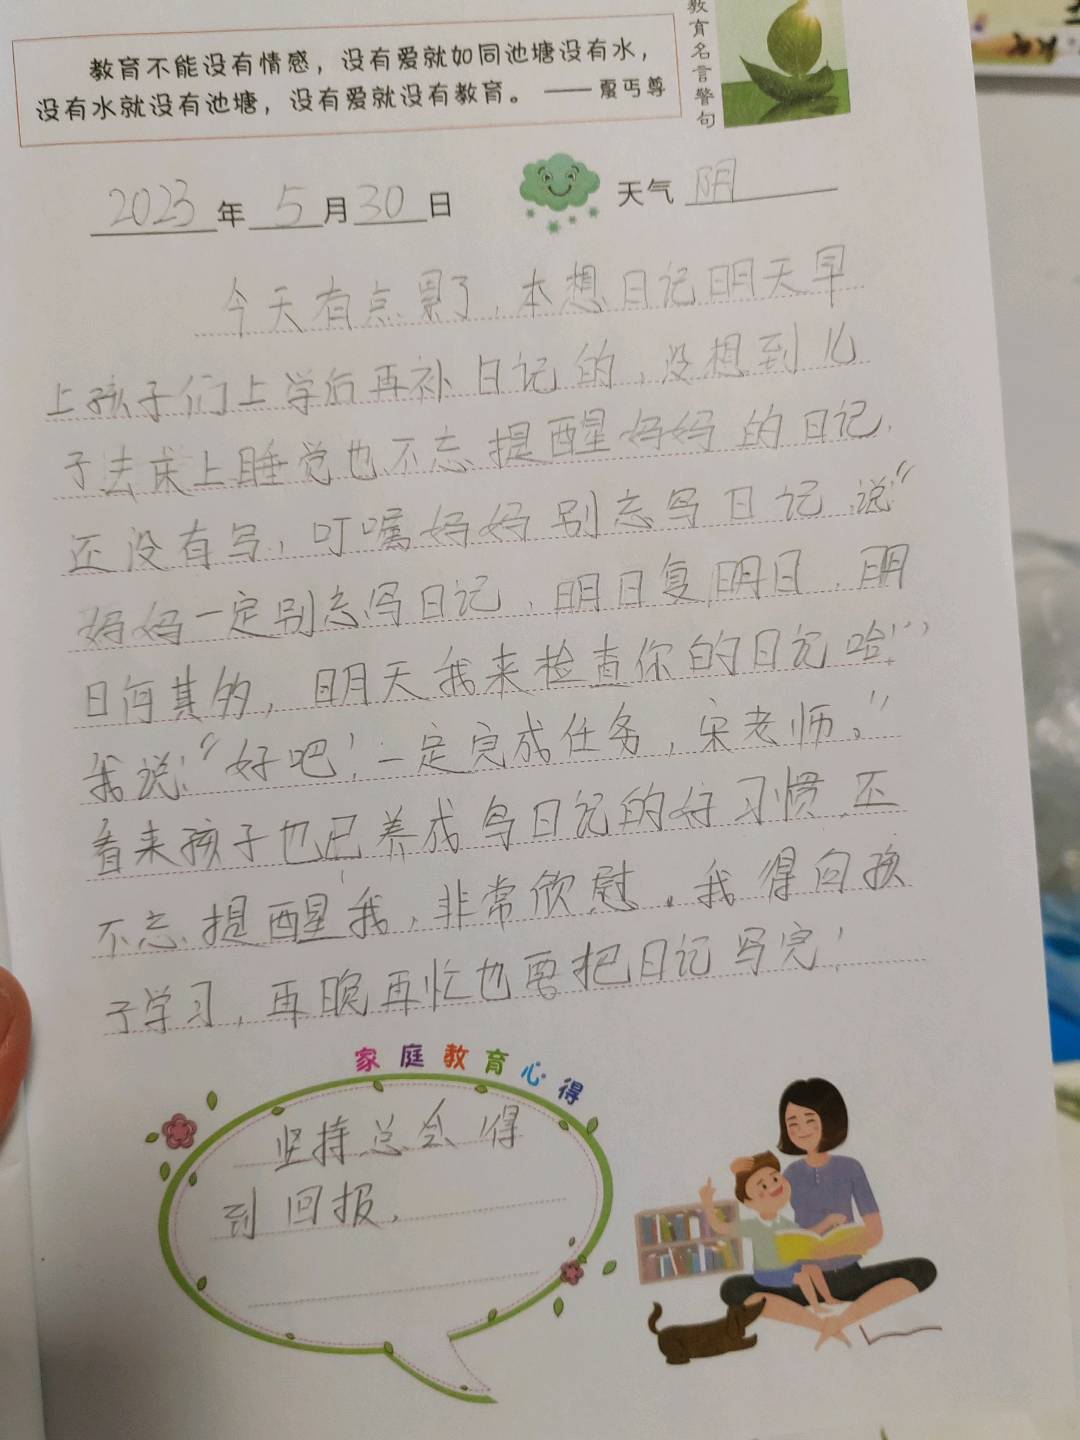 教育不能没有情感，没有爱就如同池塘没有水，
没有水就没有池塘，没有爱就没有教育。 —— 夏丏尊
教育名言警句
2023年 5月30日 天气 阴
今天有点累了，本想日记明天早
上孩子们上学后再补日记的，没想到儿
子去床上睡觉也不忘提醒妈妈的日记，
还没有写，叮嘱妈妈别忘写日记，说：“
妈妈一定别忘写日记，明日复明日，明
日何其多，明天我来检查你的日记哈！”，
我说：“好吧！一定完成任务，宋老师。”
看来孩子也已养成写日记的好习惯，还
不忘提醒我，非常欣慰。我得向孩
子学习，再晚再忙也要把日记写完！
家庭教育心得
坚持总会得
到回报。